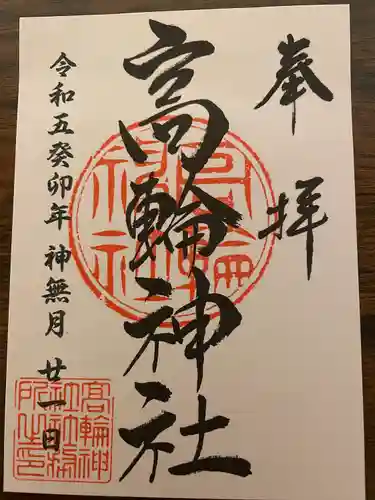 奉拝
高輪神社
令和五癸卯年 神無月 廿一日
高輪神
社社務
所之印
高輪
神社